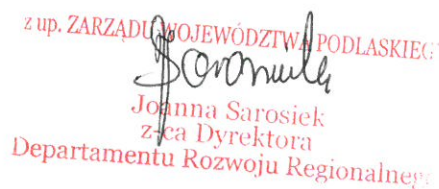 z up. ZARZĄDU WOJEWÓDZTWA PODLASKIEG
Joanna Sarosiek
z-ca Dyrektora
Departamentu Rozwoju Regionalnego